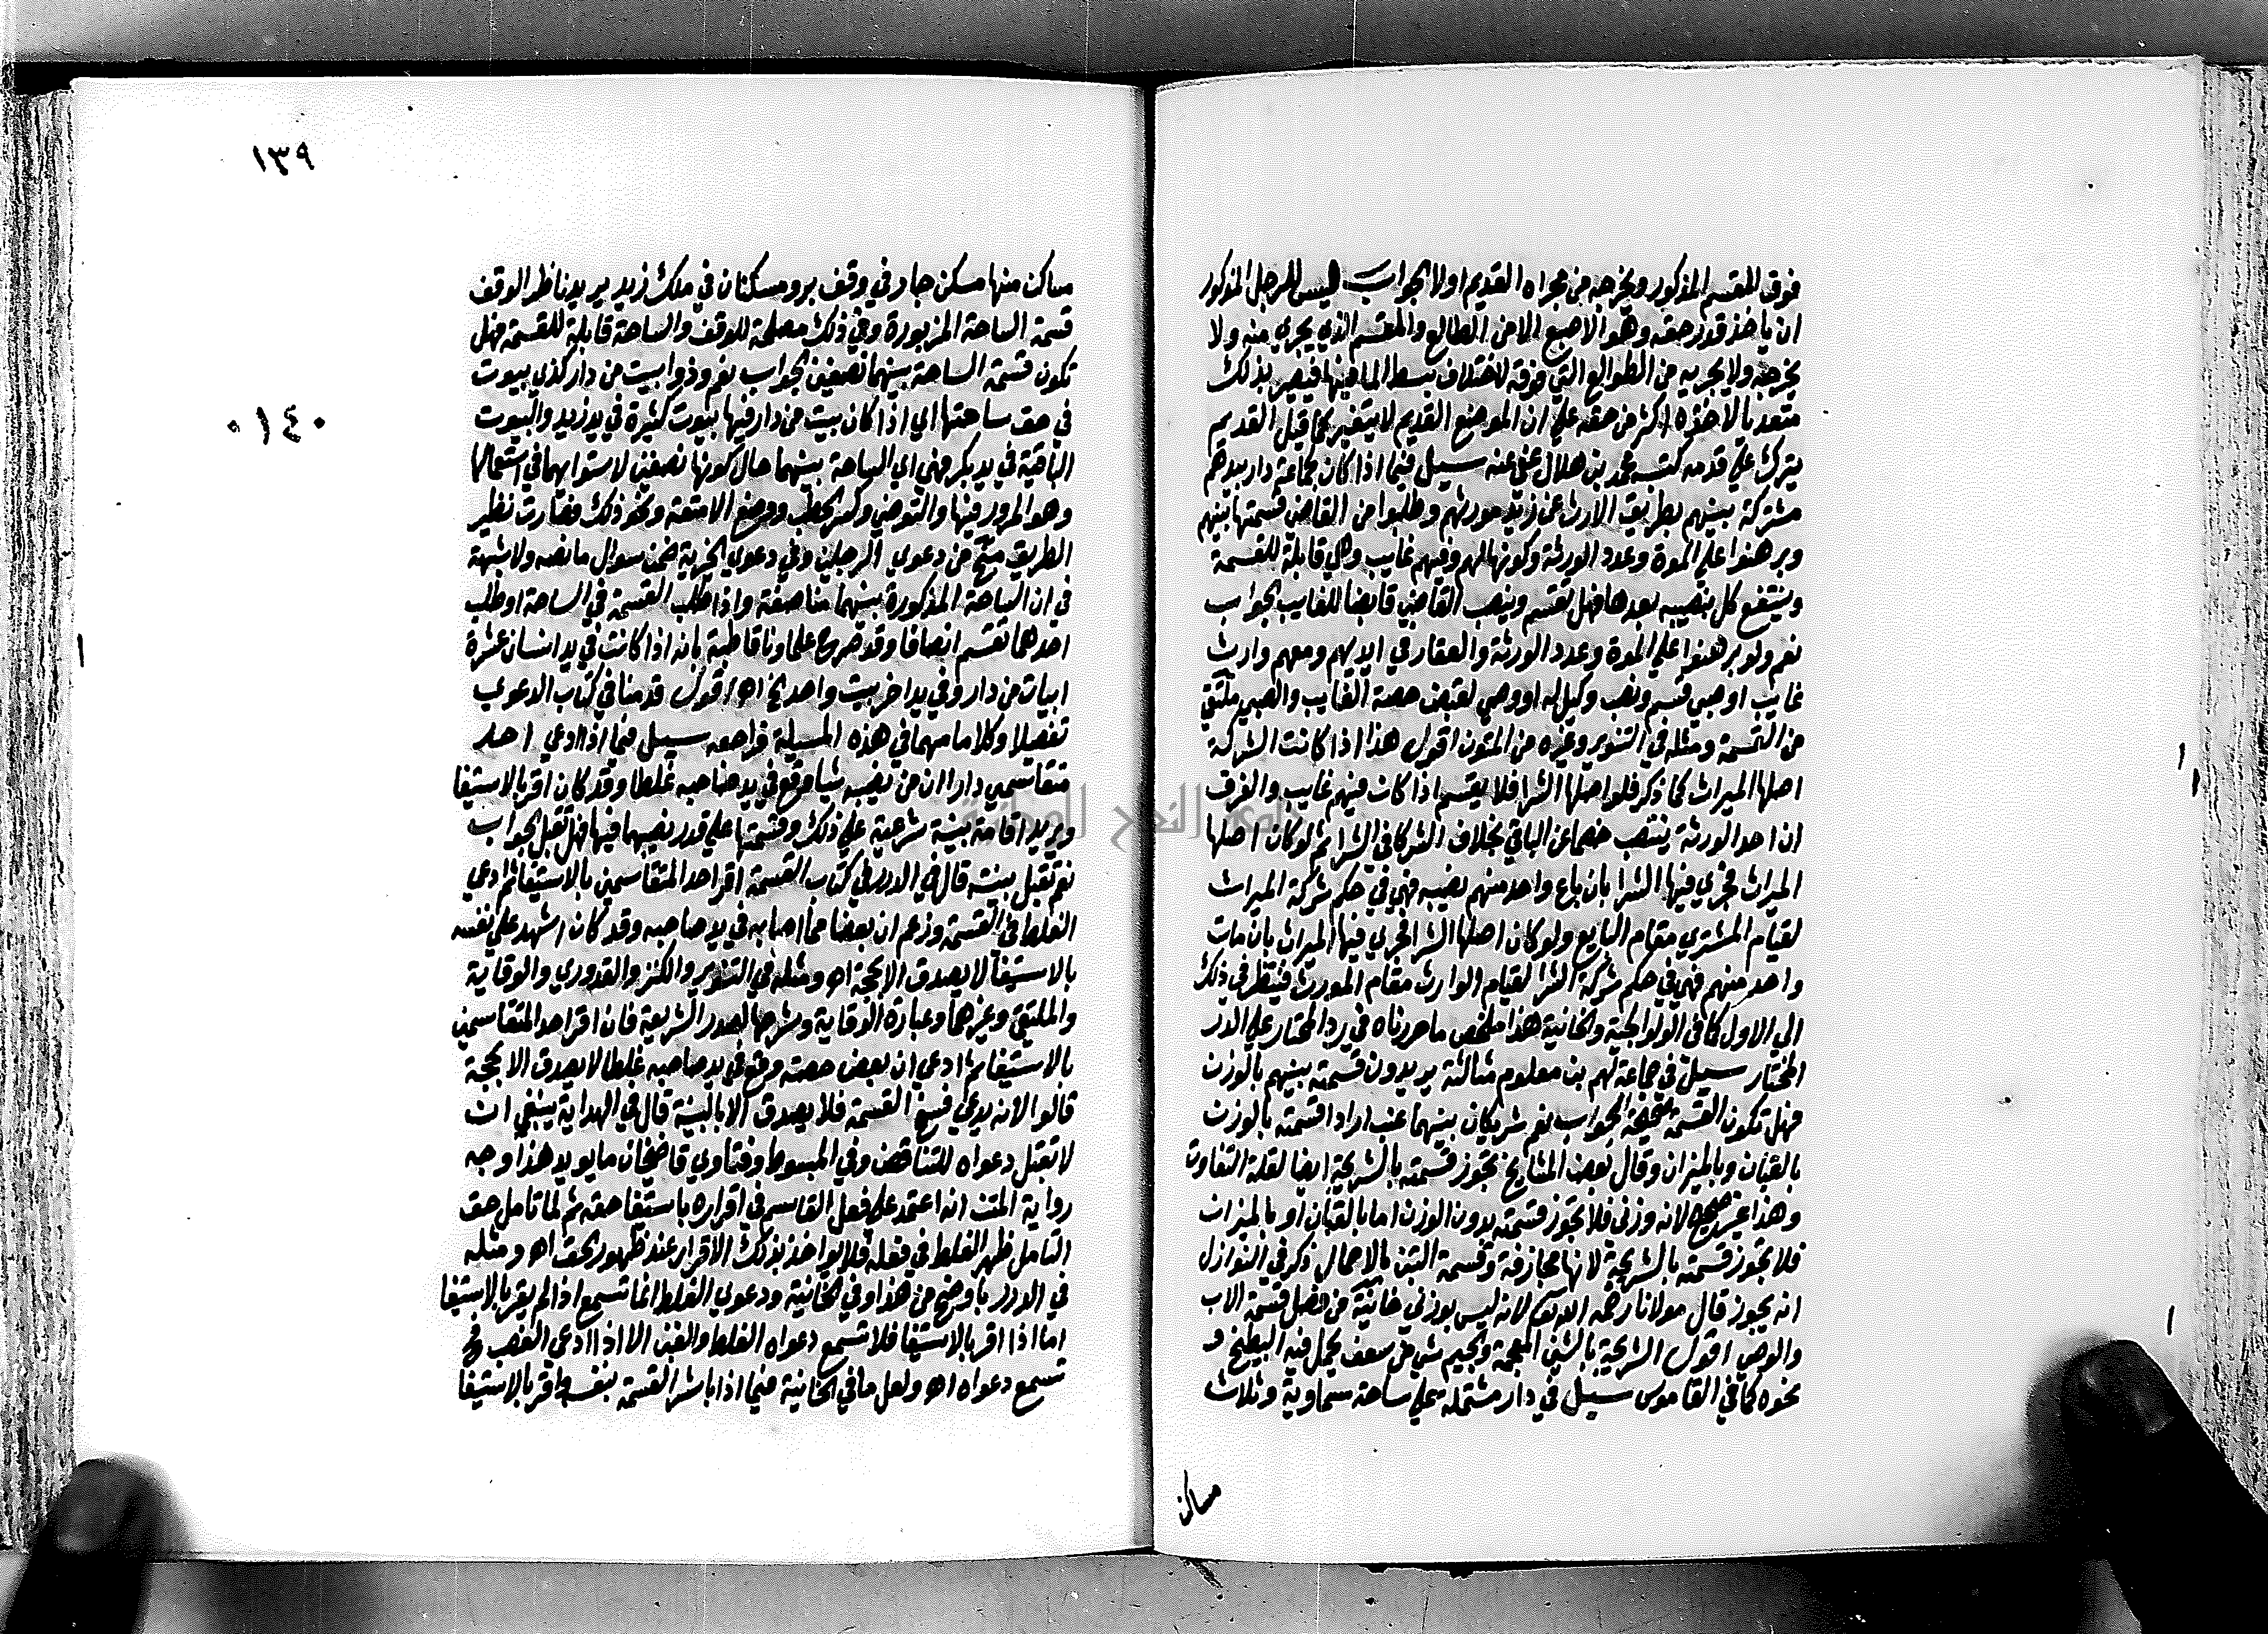 فوق المقسم المذكور ويخرجه من مجراه القديم اولا الجواب ليس للرجل المذكور
ان ياخذ قدر حقه وهو الاصبع الا من الطالع والمقسم الذي يجري منه ولا
يخرجه ولا يجريه من الطوالع التي فوقه لاختلاف بسط الما فيها فيصير بذلك
متعد بالاخذه اكثر من حقه علي ان الموضع القديم لا يتغير كما قيل القديم
يترك علي قدمه كتبه محمد بن هلال عفي عنه سيل فيما اذا كان لجماعة دار بيدهم
مشتركة بينهم بطريق الارث عن زيد مورثهم وطلبوا من القاضي قسمتها بينهم
وبرهنوا علي الموت وعدد الورثة وكونها لهم وفيهم غايب وهي قابلة للقسمة
وينتفع كل بنصيبه بعدها فهل تقسم وينصب القاضي قابضا للغايب الجواب
نعم ولو برهنوا علي الموة وعدد الورثة والعقار في ايديهم ومعهم وارث
غايب او صبي قسم ونصب وكيل له او وصي لقبض حصة الغايب والصبي ملتقي
من القسمة ومثله في التنوير وغيره من المتون اقول هذا اذا كانت الشركة
اصلها الميراث كما ذكر فلو اصلها الشرا فلا يقسم اذا كان فيهم غايب والفرق
ان احد الورثة ينتصب خصما عن الباقي بخلاف الشركا في الشرا ثم لو كان اصلها
الميراث فجري فيها الشرا بان باع واحد منهم نصيبه فهي في حكم شركة الميراث
لقيام المشتري مقام البايع ولو كان اصلها الشرا فجري فيها الميراث بان مات
واحد منهم فهي في حكم شركة الشرا لقيام الوارث مقام المورث فينظر في ذلك
الي الاول كما في الولوالجية والخانية هذا ملخص ما حررناه في رد المحتار علي الدر
المختار سيل في جماعة لهم بن معلوم مثالثة يريدون قسمته بينهم بالوزن
فهل تكون القسمة صحيحة الجواب نعم شريكان بينهما عنب ارادا قسمته بالوزن
بالقبان وبالميزان وقال بعض المشايخ تجوز قسمته بالشريجة ايضا لقلة التفاوت
وهذا غير صحيح لانه وزني فلا تجوز قسمته بدون الوزن اما بالقبان او بالميزان
فلا تجوز قسمته بالشريجة لانها مجازفة وقسمة التبن بالاحمال ذكر في النوازل
انه يجوز قال مولانا رحمه الله تعالي لانه ليس بوزني خانية من فصل قسمة الاب
والوصي اقول الشريجة بالشين المعجمة والجيم شي من سعف يحمل فيه البطيخ و
نحوه كما في القاموس سيل في دار مشتملة علي ساحة سماوية وثلاث
مساكن
١٣٩
١٤٠
مساكن منها مسكن جار في وقف بر ومسكنان في ملك زيد يريد ناظر الوقف
قسمة الساحة المزبورة وفي ذلك مصلحة للوقف والساحة قابلة للقسمة فهل
تكون قسمة الساحة بينهما نصفين الجواب نعم وذو بيت من دار كذي بيوت
في حق ساحتها اي اذا كان بيت من دار فيها بيوت كثيرة في يد زيد والبيوت
الباقية في يد بكر فهي اي الساحة بينهما حال كونها نصفين لاستوايهما في استعمالها
وهو المرور فيها والتوضي وكسر الحطب ووضع الامتعة ونحو ذلك فصارت نظير
الطريق منح من دعوي الرجلين وفي دعوي الخيرية ضمن سوال ما نصه ولا شبهة
في ان الساحة المذكورة بينهما مناصفة واذا طلب القسمة في الساحة او طلب
احدهما تقسم انصافا وقد صرح علماونا قاطبة بانه اذا كانت في يد انسان عشرة
ابيات من دار وفي يد اخر بيت واحد الخ اه اقول قدمنا في كتاب الدعوي
تفصيلا وكلاما مهما في هذه المسيلة فراجعه سيل فيما اذا ادعي احد
متقاسمي دار ان من نصيبه شيا وقع في يد صاحبه غلطا وقد كان اقر بالاستيفا
ويريد اقامة بينة شرعية علي ذلك وقسمتها علي قدر نصيبهما فيها فهل تقبل الجواب
نعم تقبل بينته قال في الدرر في كتاب القسمة اقر احد المتقاسمين بالاستيفا ثم ادعي
الغلط في القسمة وزعم ان بعضا مما اصابه في يد صاحبه وقد كان اشهد علي نفسه
بالاستيفا لا يصدق الا بحجة اه ومثله في التنوير والكنز والقدوري والوقاية
والملتقي وغيرها وعبارة الوقاية وشرحها لصدر الشريعة فان اقر احد المتقاسمين
بالاستيفا ثم ادعي ان بعض حصته وقع في يد صاحبه غلطا لا يصدق الا بحجة
قالوا لانه يدعي فسخ القسمة فلا يصدق الا بالبينة قال في الهداية ينبغي ان
لا تقبل دعواه للتناقض وفي المبسوط وفتاوي قاضيخان ما يويد هذا وجه
رواية المتن انه اعتمد علي فعل القاسم في اقراره باستيفا حقه ثم لما تامل حق
التامل ظهر الغلط في فعله فلا يواخذ بذلك الاقرار عند ظهور الحق اه ومثله
في الدرر باوضح من هذا وفي الخانية ودعوي الغلط انما تسمع اذا لم يقر بالاستيفا
اما اذا اقر بالاستيفا فلا تسمع دعواه الغلط والغبن الا اذا ادعي الغصب فح
تسمع دعواه اه ولعل ما في الخانية فيما اذا باشر القسمة بنفسه واقر بالاستيفا